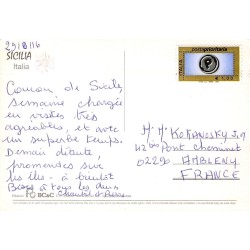 29/8/16
SICILIA
Italia
Coucou de Sicile,
semaine chargée
en visites très
agréables, et avec
un superbe temps.
Demain détente,
promenades sur
les îles - à bientôt
Bises à tous les deux
postaprioritaria
ITALIA
P
M. M. KOFANOSKY
Pont Cheminet
02290 AMBLENY
FRANCE